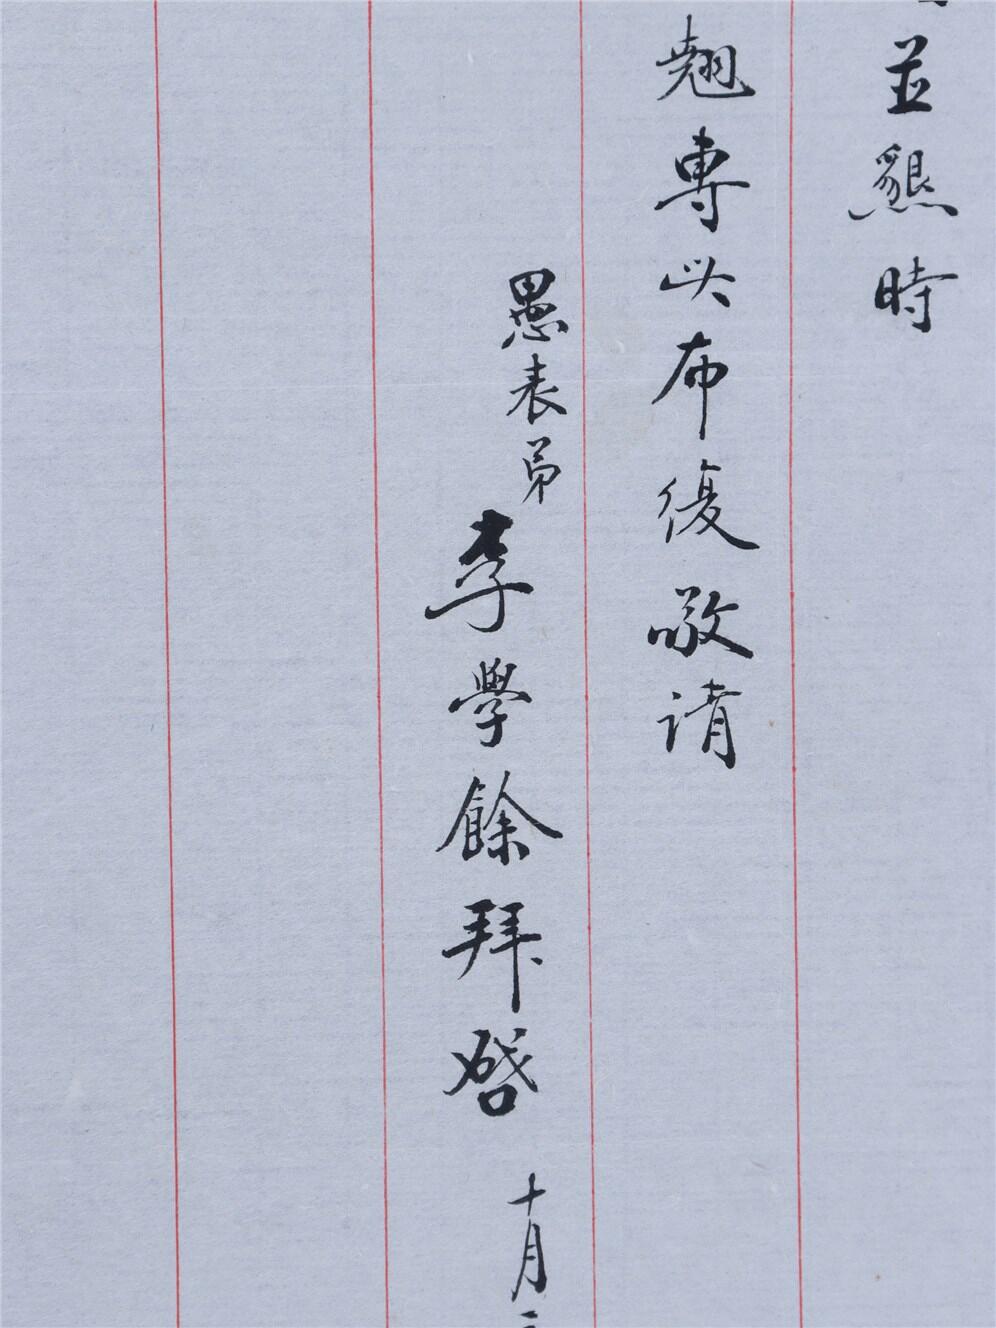 並懇時
翹專此布復敬請
愚表弟李學餘拜啓 十月